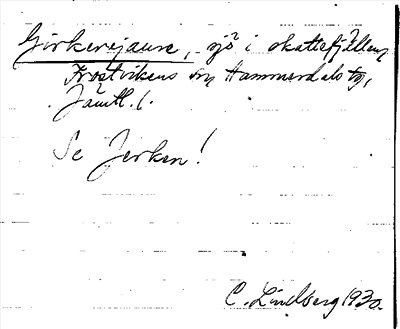 Girkerejaure, sjö i skattefjällen,
Frostvikens sn, Hammerdals tg,
Jämtl. l.
Se Jerken!
C. Lindberg 1930.